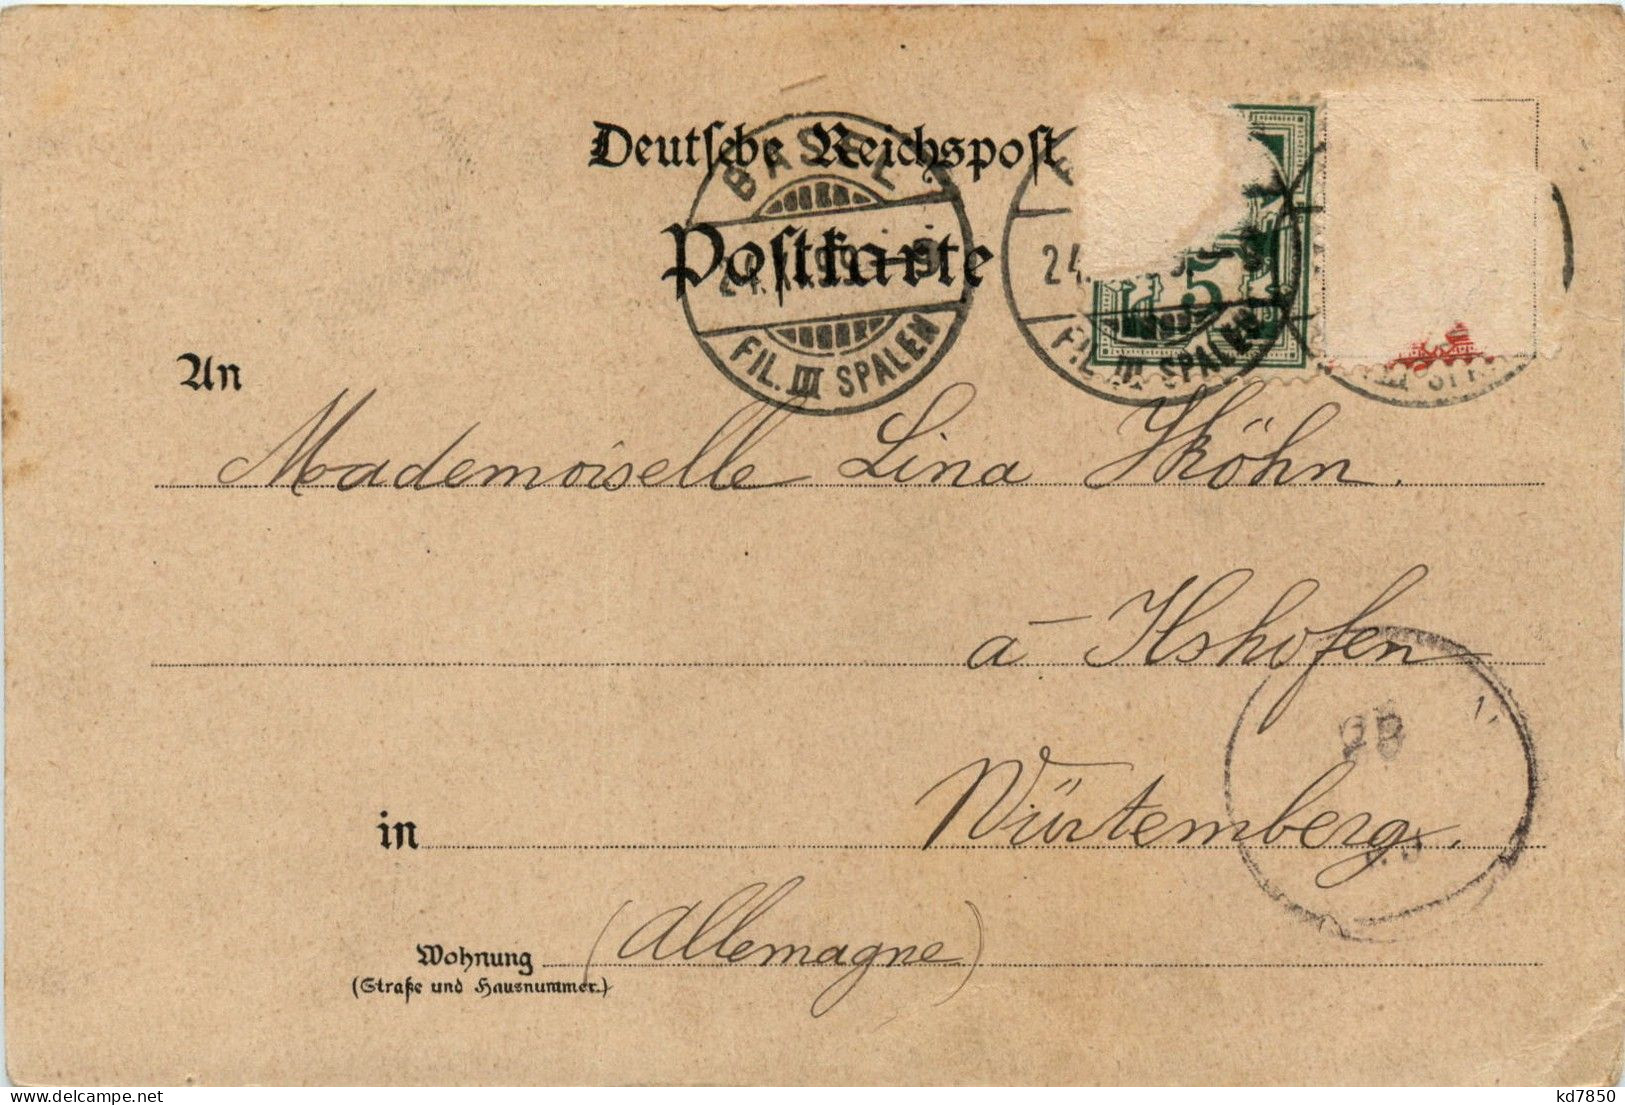 Deutsche Reichspost
Postkarte
BASEL
FIL. III SPALEN
24.
FIL. III SPALEN
5
An
Mademoiselle Lina Köhn.
à Ilshofen
in Würtemberg.
Wohnung (Allemagne)
(Straße und Hausnummer.)
kd7850